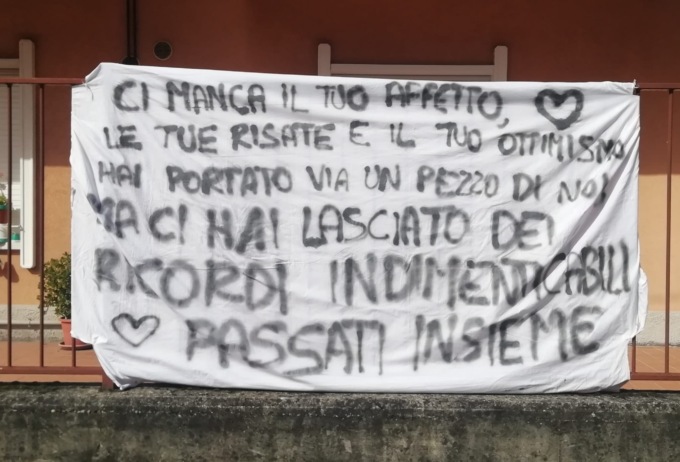 CI MANCA IL TUO AFFETTO,
LE TUE RISATE E IL TUO OTTIMISMO
HAI PORTATO VIA UN PEZZO DI NOI
MA CI HAI LASCIATO DEI
RICORDI INDIMENTICABILI
PASSATI INSIEME